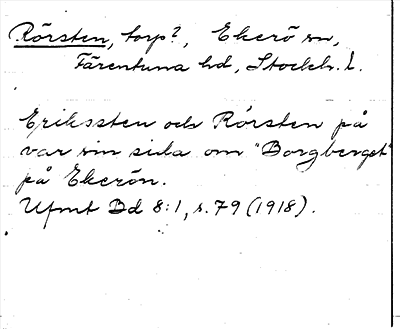 Rörsten, torp?, Ekerö sn,
Färentuna hd, Stockh. l.
Erikssten och Rörsten på
var sin sida om "Borgberget"
på Ekerön.
Ufmt Bd 8:1, s. 79 (1918).